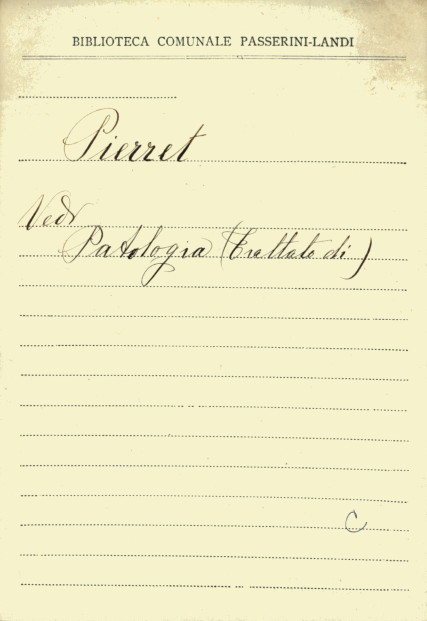 BIBLIOTECA COMUNALE PASSERINI-LANDI
Pierret
Vedi
Patologia (Trattato di)
C